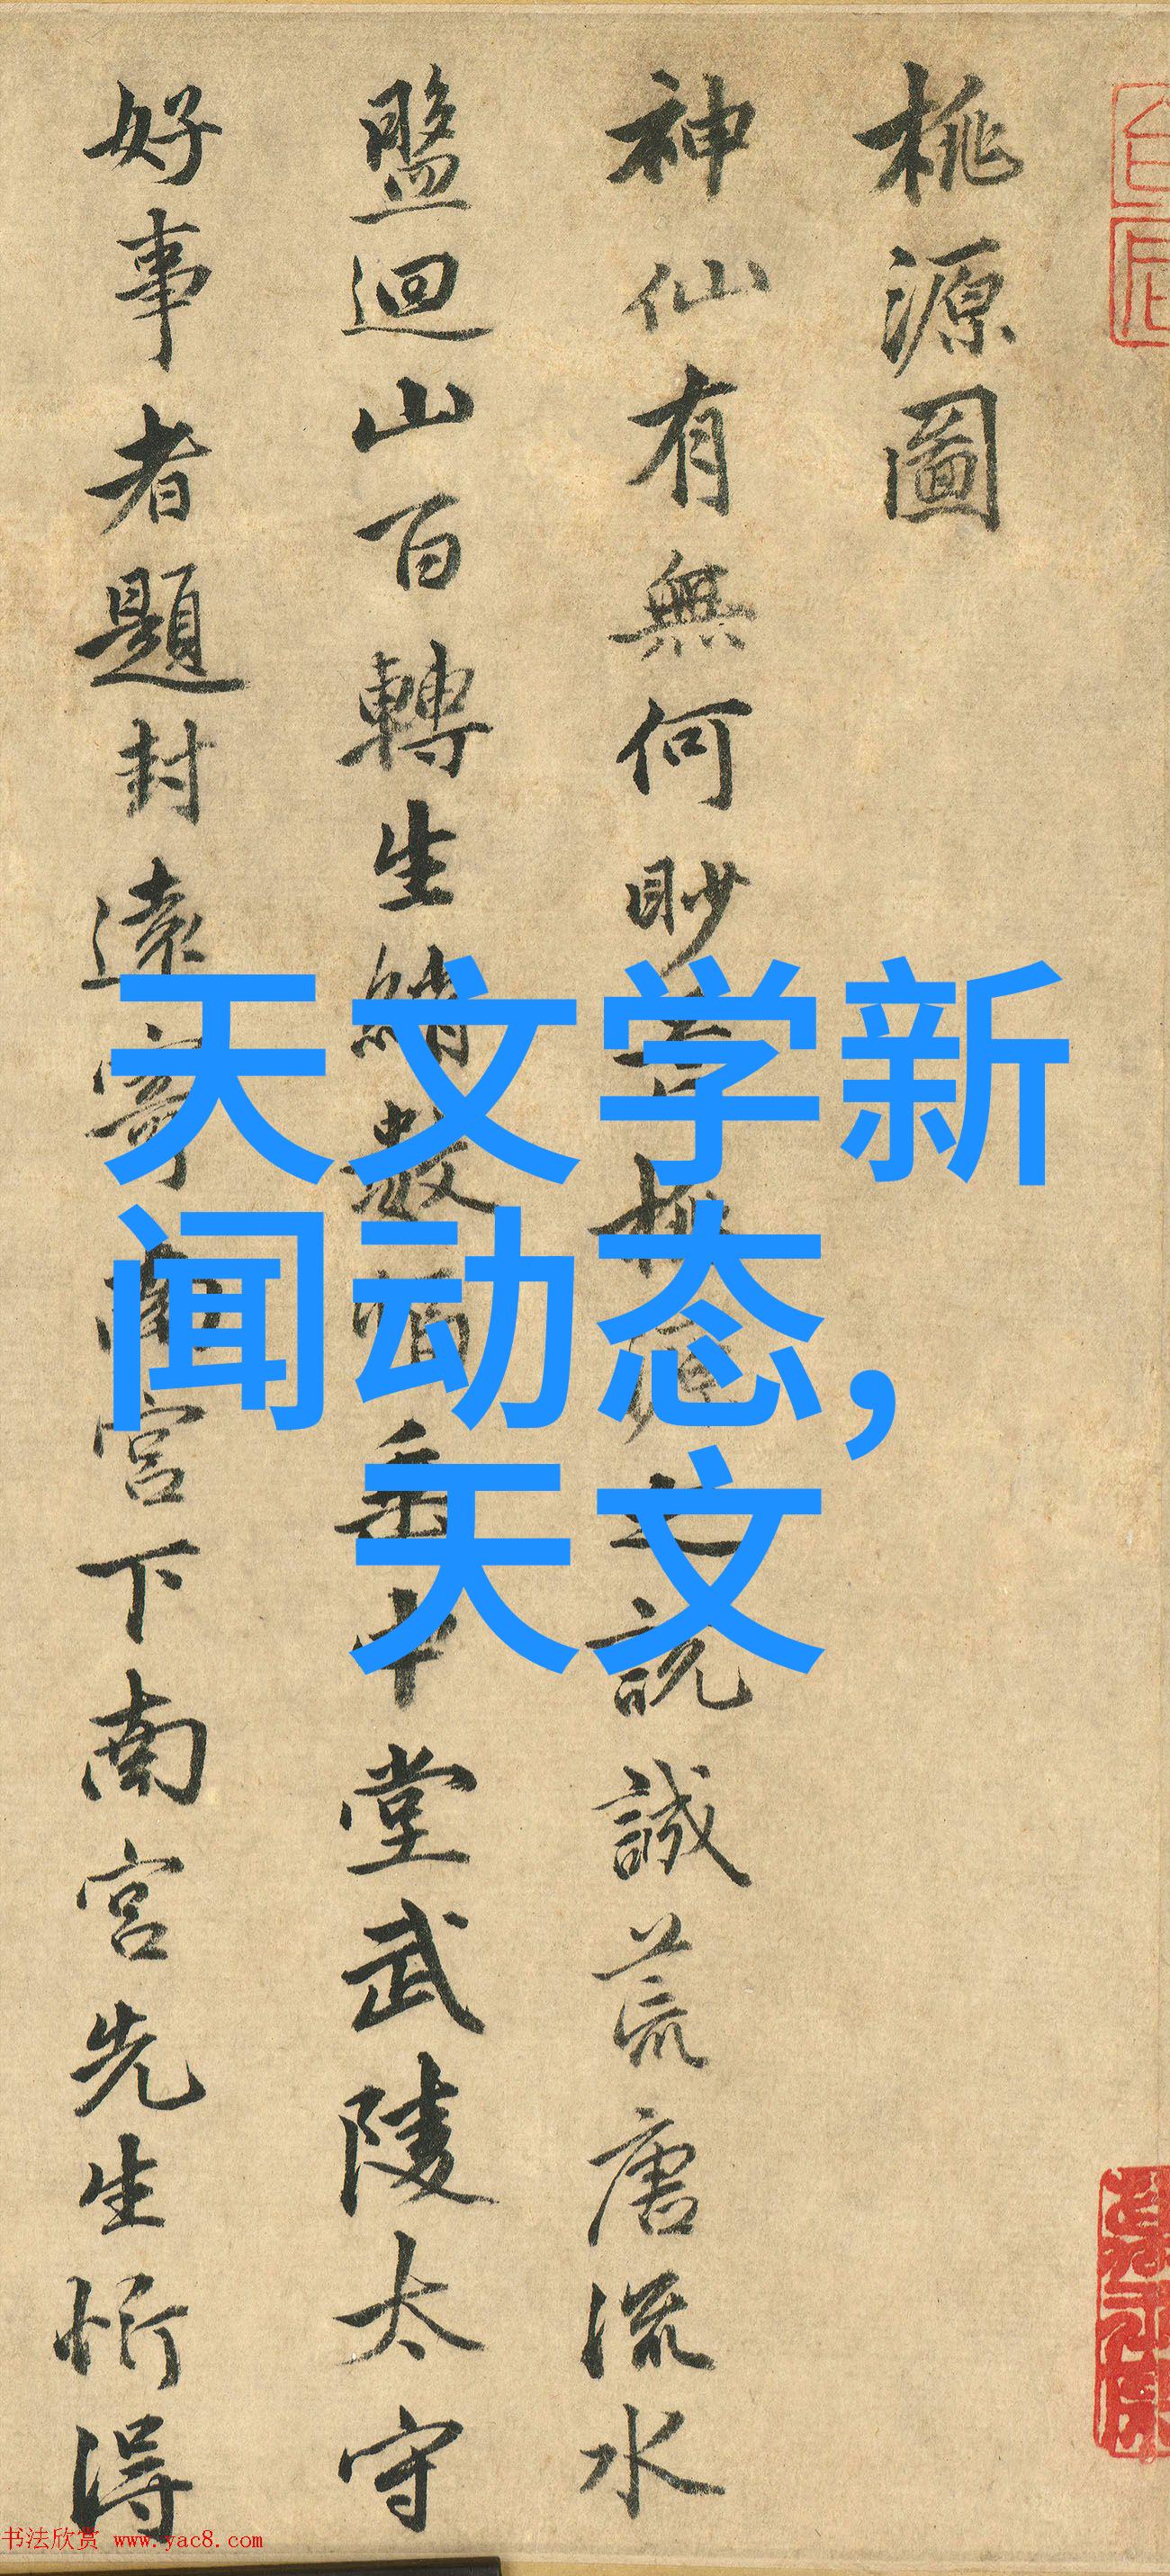 桃源圖
神仙有無何眇芒桃源之說誠荒唐流水
盤迴山百轉生綃數幅垂中堂武陵太守
好事者題封遠寄南宮下南宮先生忻得
天文学新
闻动态，
天文
书法欣赏 www.yac8.com